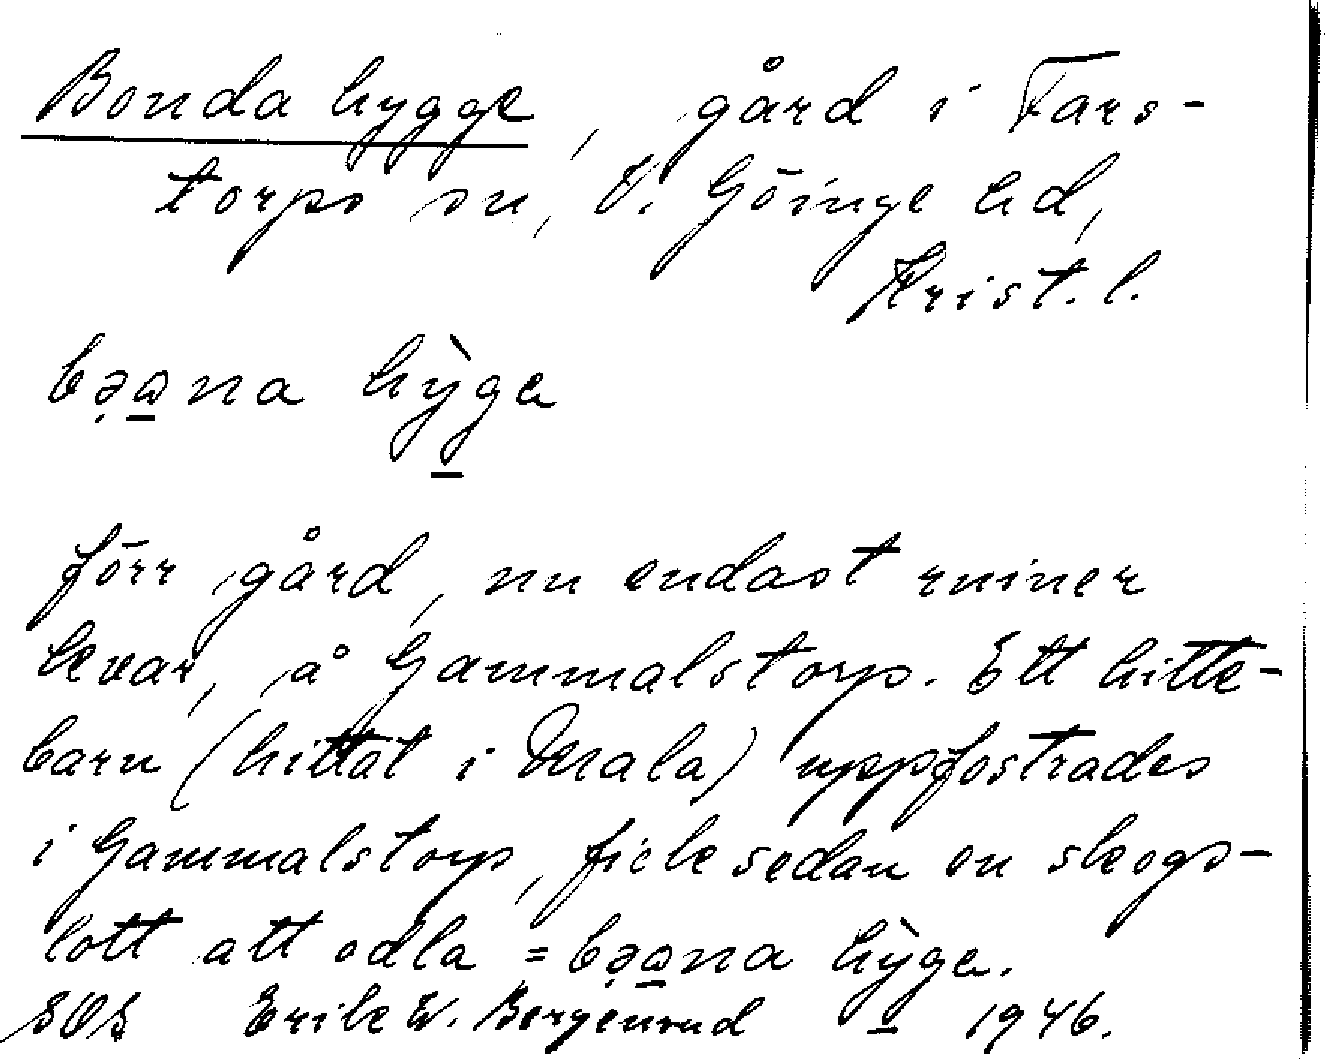 Bonda hygge, gård i Fars-
torps sn, V. Göinge hd,
Krist. l.
bə̣ω̲na hỳ̲gə
förr gård, nu endast ruiner
kvar, å Gammalstorp. Ett hitte-
barn (hittat i Mala) uppfostrades
i Gammalstorp, fick sedan en skogs-
lott att odla = bə̣ω̲na hỳ̲gə.
SOS Erik W. Bergenrud 1946.